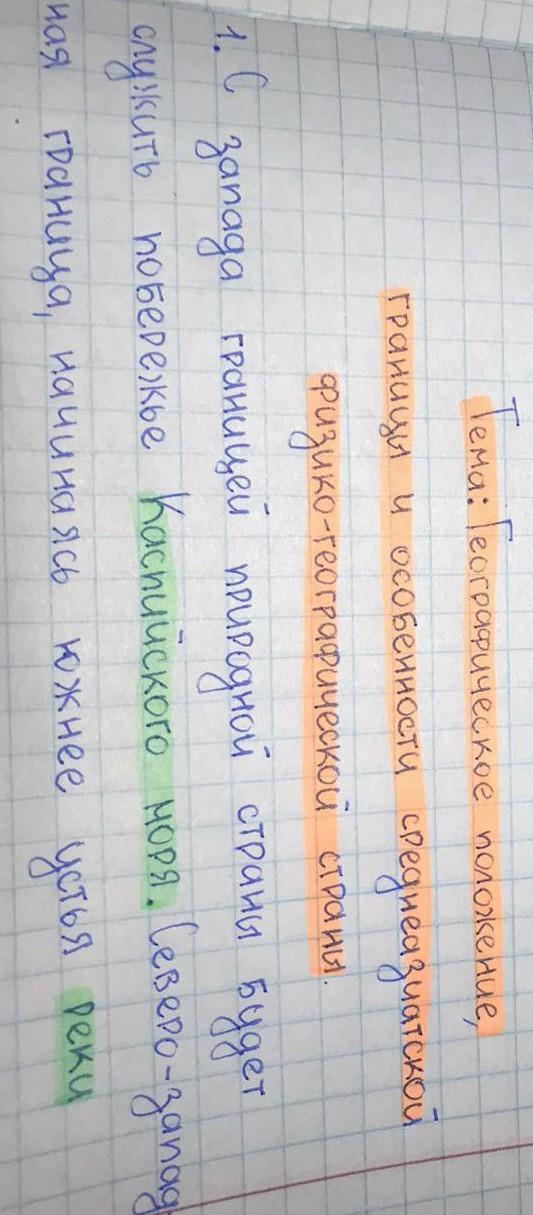 Тема: Географическое положение,
границы и особенности среднеазиатской
физико-географической страны.
1. С запада границей природной страны будет
служить побережье Каспийского моря. Северо-запад
ная граница, начинаясь южнее устья реки